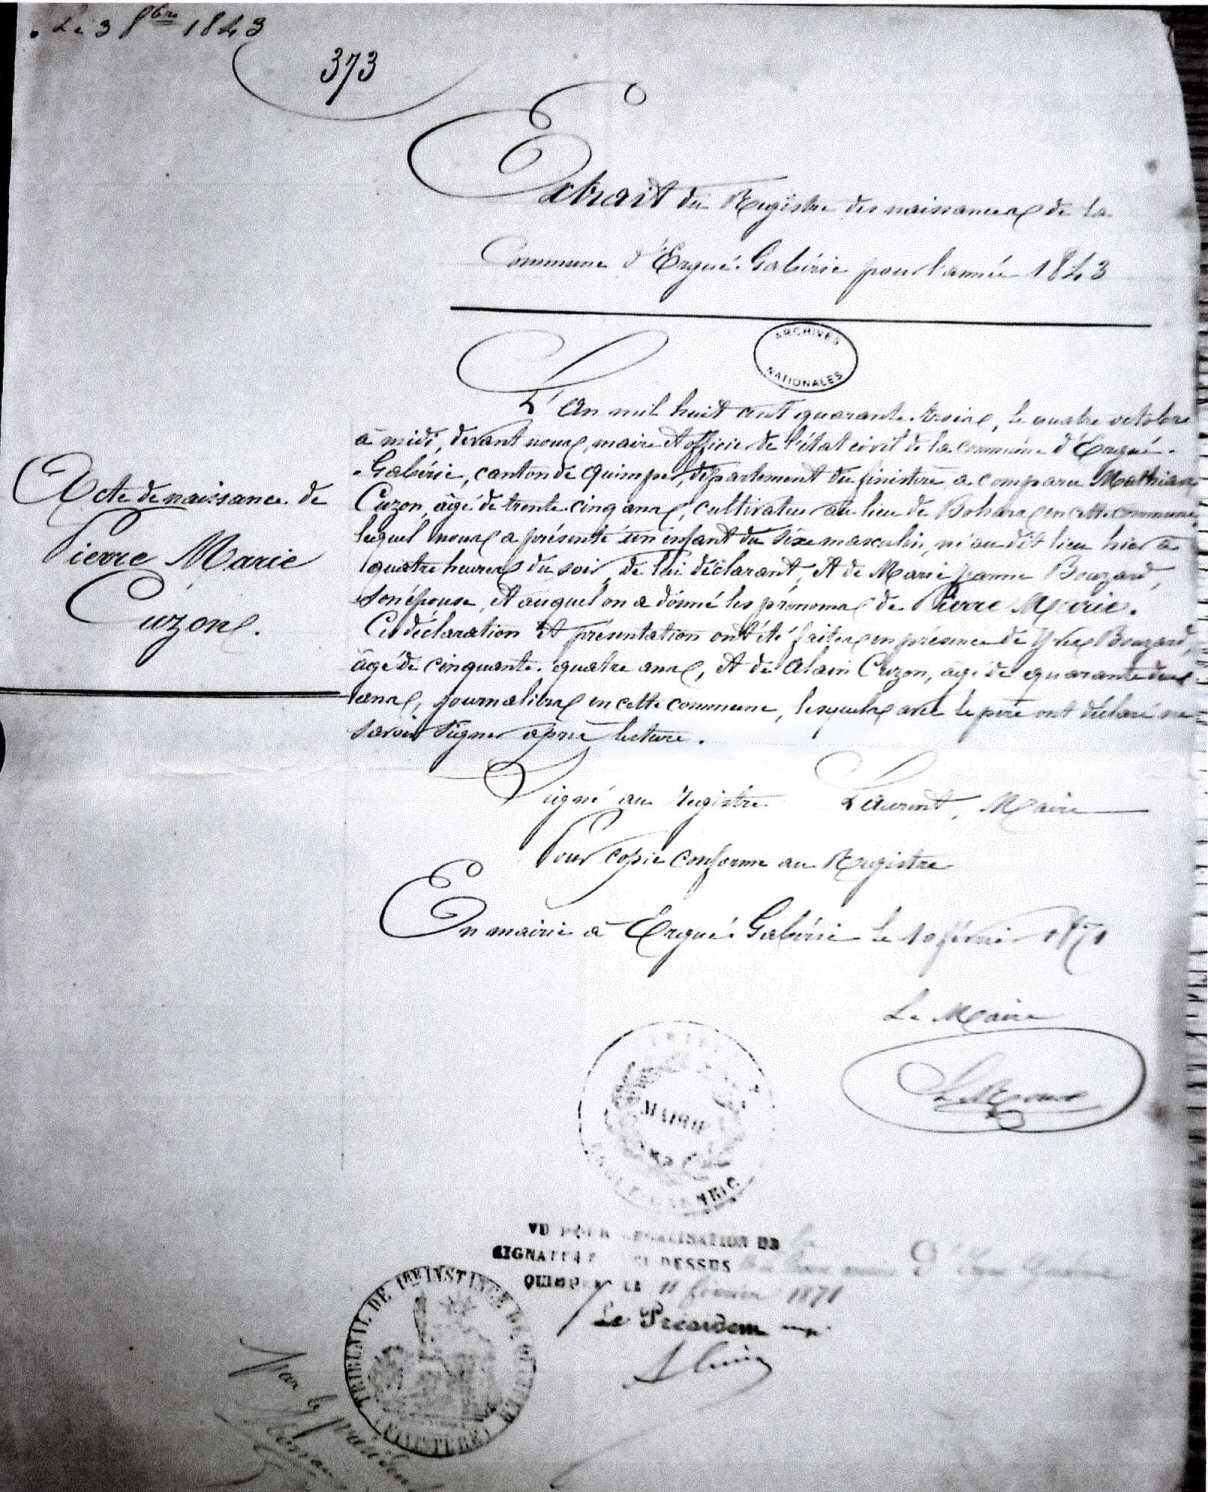 Le 3 8bre 1843
373
Extrait du Registre des naissances de la
Commune d'Ergué-Gabéric pour l'année 1843
ARCHIVES
NATIONALES
L'An mil huit cent quarante-trois, le quatre octobre
à midi, devant nous, maire et officier de l'état civil de la commune d'Ergué-
-Gabéric, canton de Quimper, département du finistère, a comparu Mathias
Cuzon, âgé de trente-cinq ans, cultivateur au lieu de Bohars en cette commune,
lequel nous a présenté un enfant du sexe masculin, né au dit lieu hier à
quatre heures du soir, de lui déclarant, et de Marie Jeanne Bouzard,
son épouse, et auquel on a donné les prénoms de Pierre Marie.
Ces déclaration et présentation ont été faites en présence de Yves Bouzard,
âgé de cinquante-quatre ans, et de Alain Cuzon, âgé de quarante deux
ans, journaliers en cette commune, lesquels avec le père ont déclaré ne
savoir signer après lecture.
Acte de naissance de
Pierre Marie
Cuzon.
Signé au registre Laurent, Maire
Pour copie conforme au Registre
En mairie à Ergué-Gabéric le 10 février 1871
Le Maire
MAIRIE
VU POUR LEGALISATION DE la
SIGNATURE CI-DESSUS
QUIMPER LE 11 février 1871
Le Président
TRIBUNAL DE 1re INSTANCE DE QUIMPER
(FINISTÈRE)
Pour le président